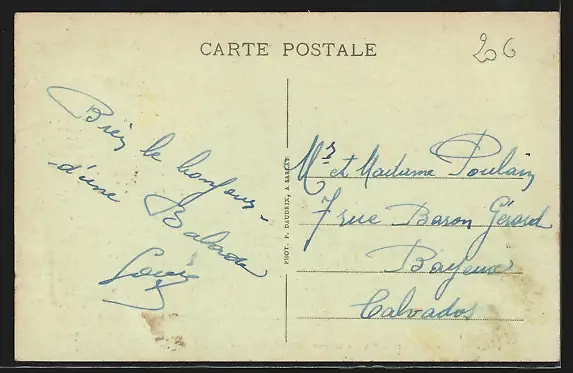 CARTE POSTALE
206
Bien le bonjour
d'une Balade
PHOT. P. DAUDRIX, A SARLAT
Mr et Madame Poulain
7 rue Baron Gérard
Bayeux
Calvados